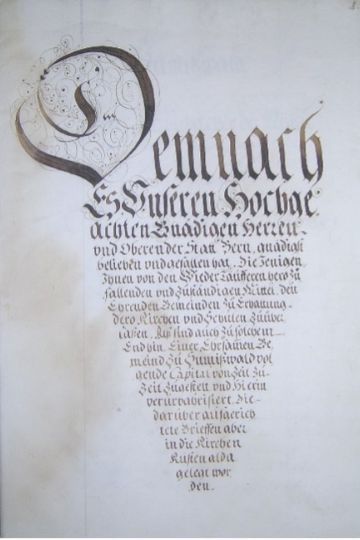 Demnach
Es Unseren Hochge
achten Gnädigen Herren
und Oberen der Statt Bern, gnädigst
belieben und gefallen hat, Die Jenigen
Ihnen von den Wieder Täufferen hero Zu
fallenden und Zuständigen Mittel, den
Ehrenden Gemeinden Zu Erbauung
dero Kirchen und Schulen Zu über
lassen, sind auch Zu solchem
End hin, Einer Ehrsamen Ge
meind Zu Sumiswald vol
gende Capital von Zeit Zu
Zeit Zugestelt und Hierin
verurbarisiert, Die
darüber aufgerich
tete Brieffen aber
in die Kirchen
Kisten alda
gelegt wor
den.